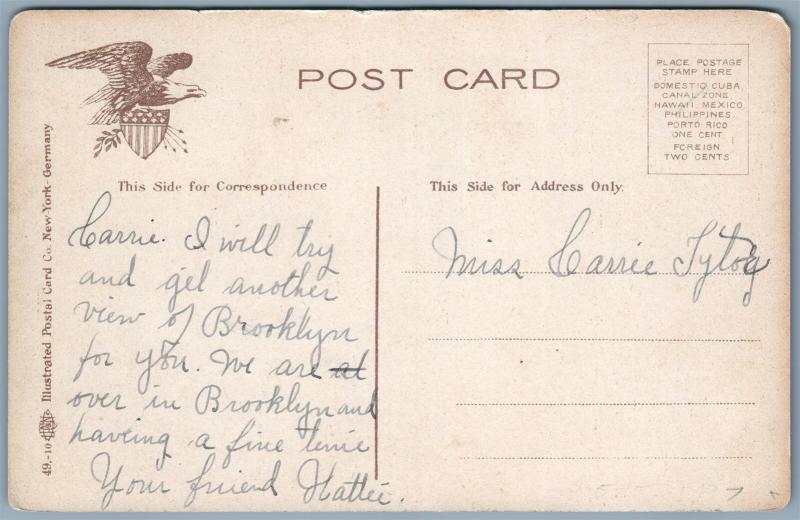 POST CARD
PLACE POSTAGE
STAMP HERE
DOMESTIC CUBA,
CANAL ZONE,
HAWAII, MEXICO,
PHILIPPINES
PORTO RICO
ONE CENT
FOREIGN
TWO CENTS
49.-10 Illustrated Postal Card Co. New-York-Germany
This Side for Correspondence
Carrie. I will try
and get another
view of Brooklyn
for you. We are at
over in Brooklyn and
haveing a fine time
Your friend Hattie.
This Side for Address Only.
Miss Carrie